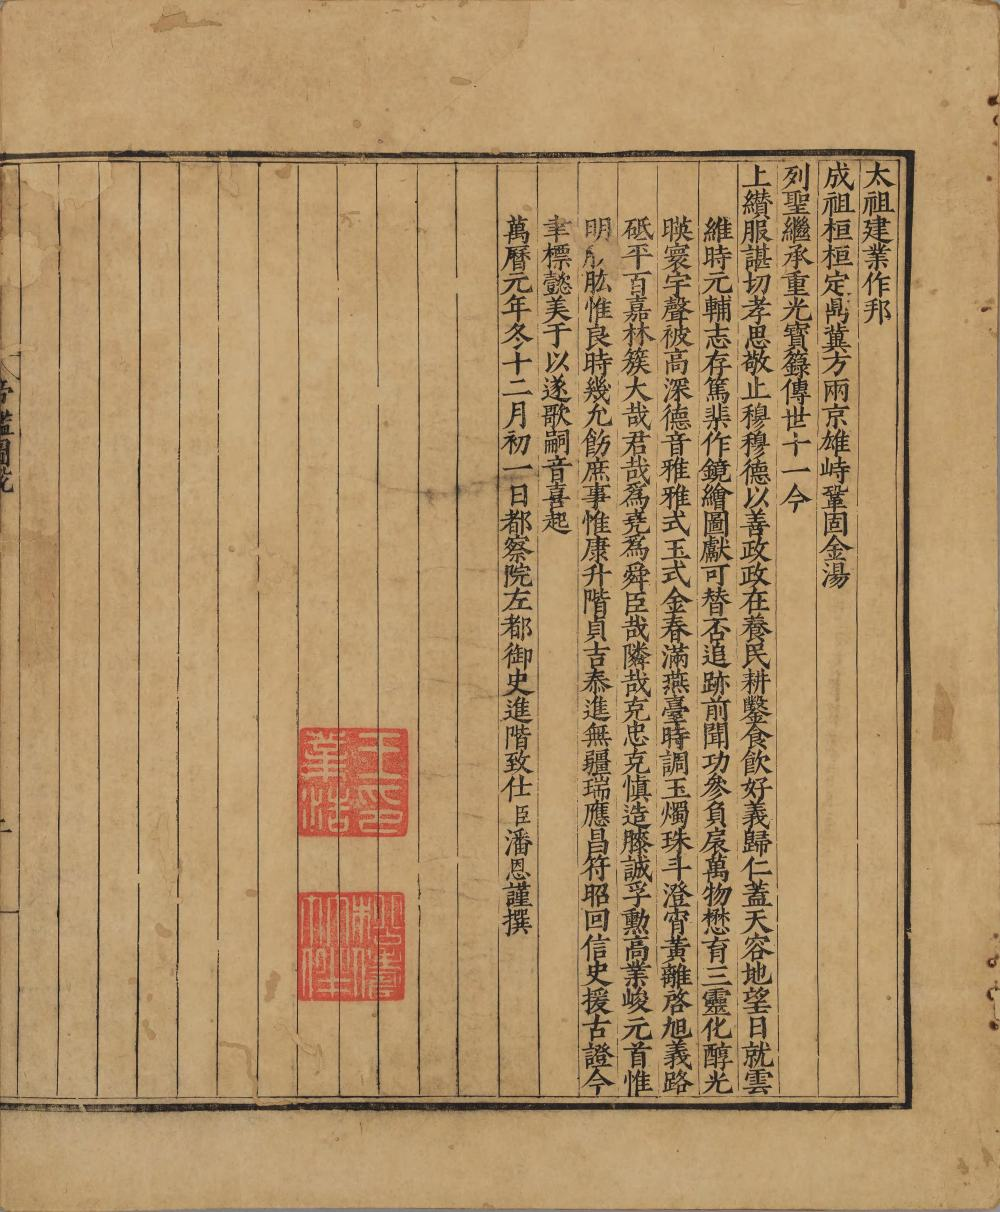 太祖建業作邦
成祖桓桓定鼎冀方兩京雄峙鞏固金湯
列聖繼承重光寶籙傳世十一今
上纘服諶切孝思敬止穆穆德以善政政在養民耕鑿食飲好義歸仁蓋天容地望日就雲
維時元輔志存篤棐作鏡繪圖獻可替否追跡前聞功參負扆萬物懋育三靈化醇光
暎寰宇聲被高深德音雅雅式玉式金春滿燕臺時調玉燭珠斗澄霄黃離啓旭義路
砥平百嘉林簇大哉君哉爲堯爲舜臣哉隣哉克忠克愼造膝誠孚勳高業峻元首惟
明股肱惟良時幾允飭庶事惟康升階貞吉泰進無疆瑞應昌符昭回信史援古證今
聿標懿美于以遂歌嗣音喜起
萬曆元年冬十二月初一日都察院左都御史進階致仕臣潘恩謹撰
王印業浩
帝鑑圖說